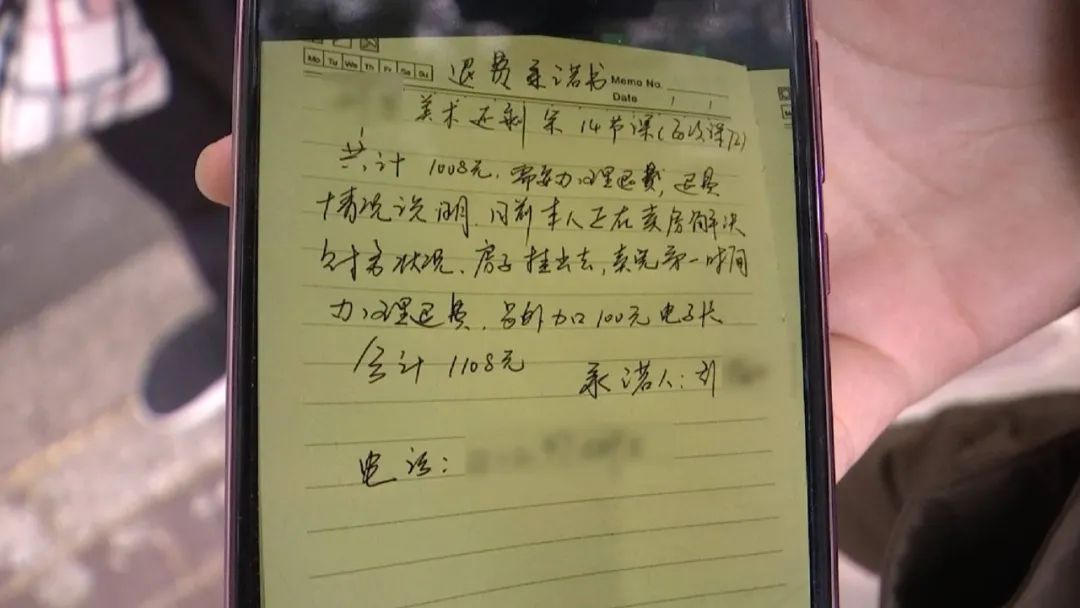 Mo Tu We Th Fr Sa Su
退费承诺书
Memo No.
Date / /
美术还剩余14节课(
共计1008元.需要办理退费,退费
情况说明.目前本人正在卖房解决
财务状况、房子挂出去,卖完第一时间
办理退费.另外加100元电子
合计1108元
承诺人:刘
电话: